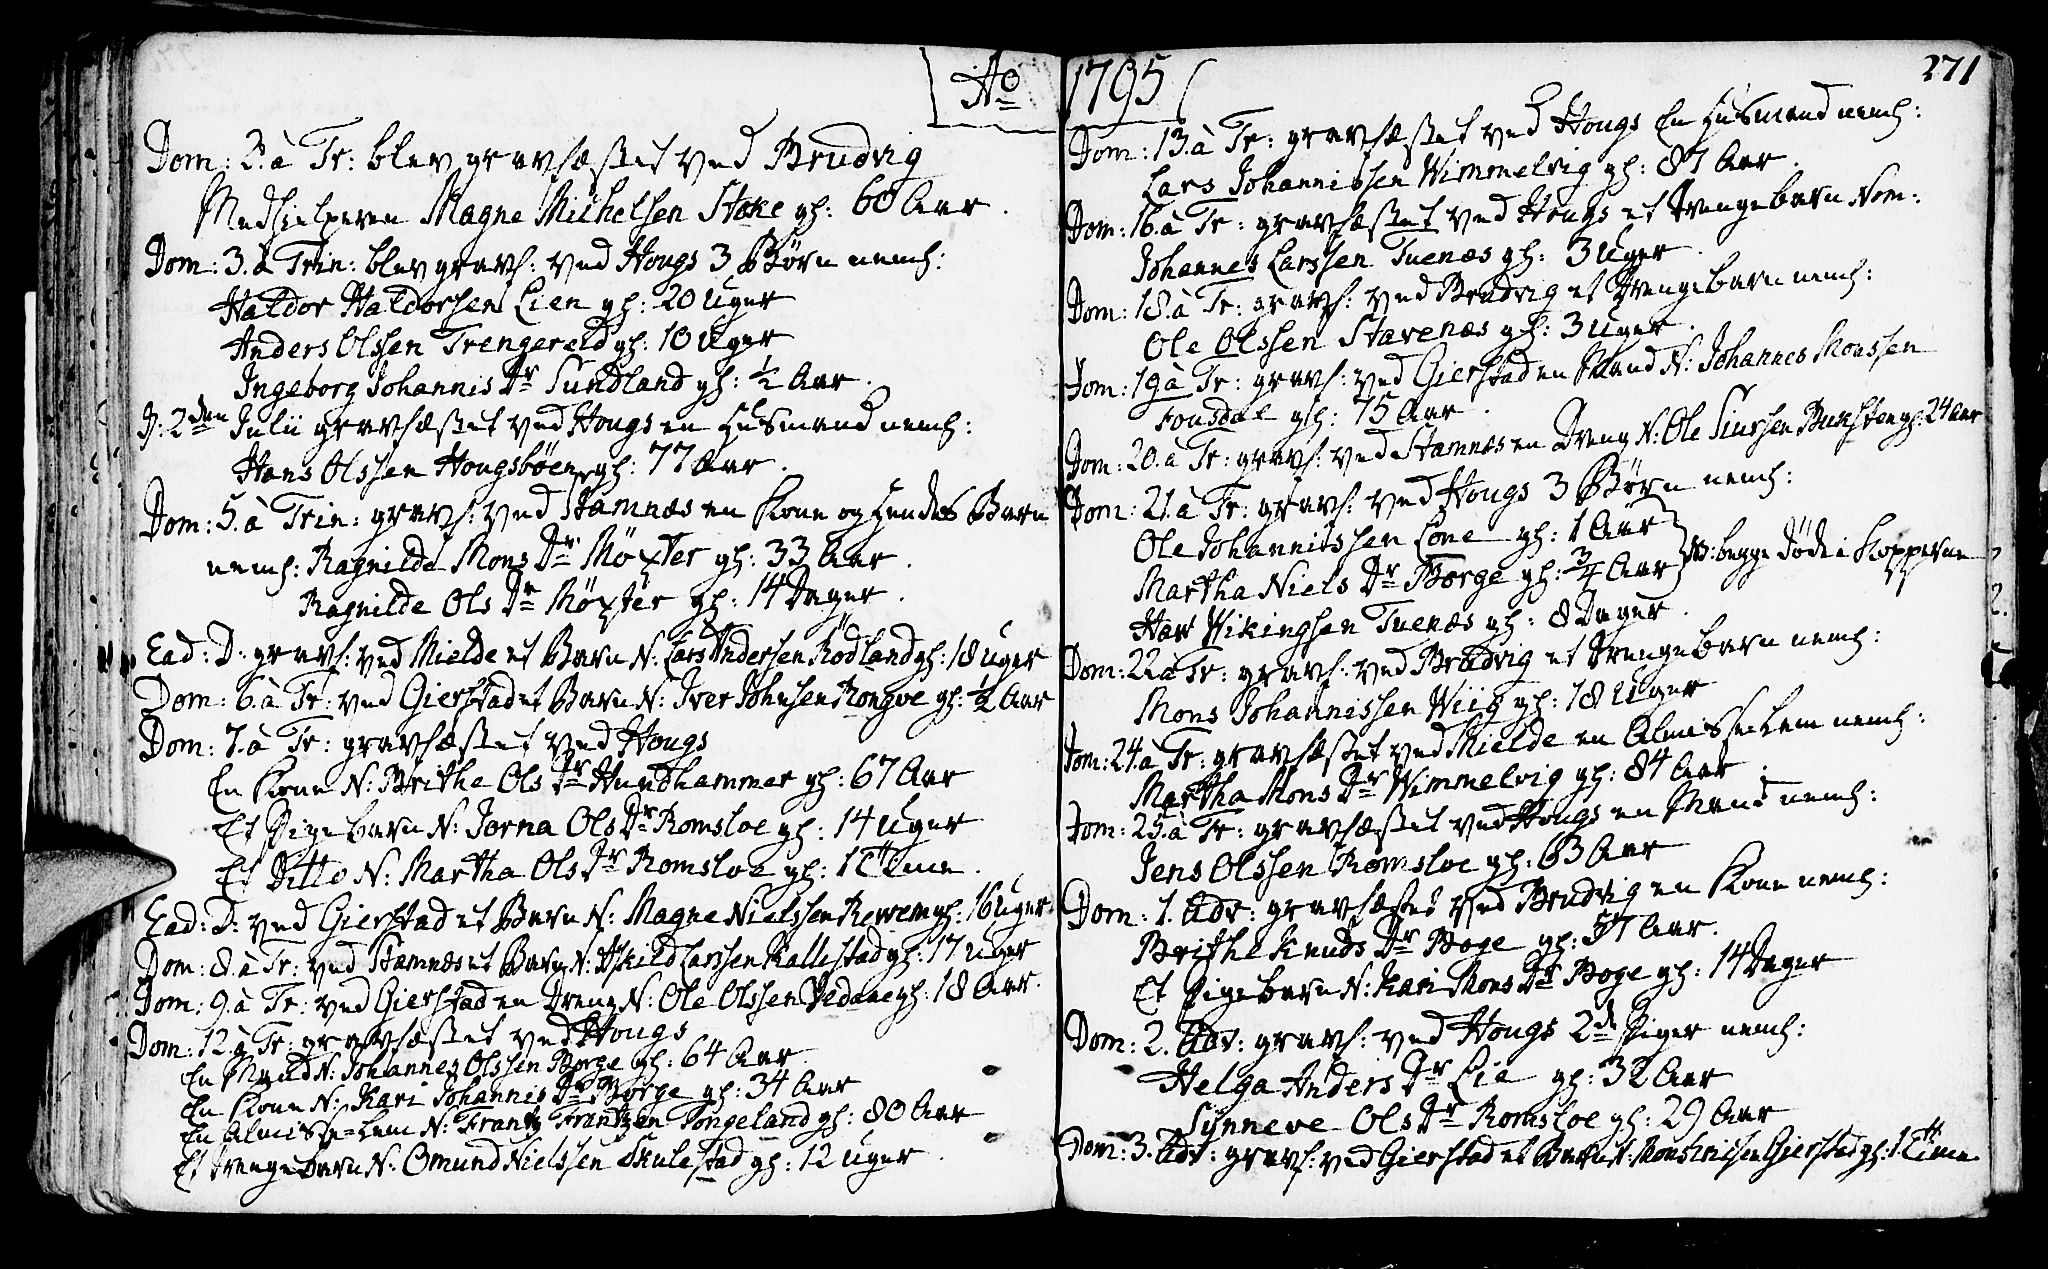 Ao 1795
271
Dom: 2. à Tr: blev gravfæstet ved Brudvig
Medhielperen Magne Michelsen Stoke gl: 60 Aar.
Dom: 3. à Trin: blev gravf: ved Hougs 3 Børn neml:
Haldor Haldorsen Lien gl: 20 Uger
Anders Olssen Trengereid gl: 10 Uger
Ingeborg Johannis Dr Sundland gl: ½ Aar.
D: 2den Julii gravfæstet ved Hougs en Huusmand neml:
Hans Olssen Hougsböen gl: 77 Aar.
Dom: 5. à Trin: gravf: ved Stamnæs en Kone og hendes Barn
neml: Ragnilde Mons Dr Möxter gl: 33 Aar.
Ragnilde Ols Dr Möxter gl: 14 Dager.
Ead: D: gravf: ved Mielde et Barn N: Lars Andersen Rödland gl: 18 Uger
Dom: 6. à Tr: ved Gierstad et Barn N: Iver Johnsen Rongve gl: ½ Aar
Dom: 7. à Tr: gravfæstet ved Hougs
En Kone N: Brithe Ols Dr Hundhammer gl: 67 Aar
Et Pigebarn N: Jorna Ols Dr Romsloe gl: 14 Uger
Et Ditto N: Martha Ols Dr Romsloe gl: 1 Time.
Ead: D: ved Gierstad et Barn N: Magne Nielssen Rewem gl: 16 Uger
Dom: 8. à Tr: ved Stamnæs et Barn N: Askild Larssen Kallestad gl: 17 Uger
Dom: 9. à Tr: ved Gierstad en Dreng N: Ole Olssen Vedaae gl: 18 Aar.
Dom: 12. à Tr: gravfæstet ved Hougs
En Mand N: Johannes Olssen Borge gl: 64 Aar.
En Kone N: Kari Johannis Dr Borge gl: 34 Aar
En Almisse-Lem N: Frantz Frantzen Fongeland gl: 80 Aar
Et Drengebarn N: Omund Nielssen Skulestad gl: 12 Uger.
Dom: 13. à Tr: gravfæstet ved Hougs En Huusmand neml:
Lars Johannissen Wimmelvig gl: 87 Aar.
Dom: 16. à Tr: gravfæstet ved Hougs et Drengebarn Nom:
Johannes Larssen Tuenæs gl: 3 Uger.
Dom: 18. à Tr: gravf: ved Brudvig et Drengebarn neml:
Ole Olssen Stavenæs gl: 3 Uger.
Dom: 19 à Tr: gravf: ved Gierstad en Mand N: Johannes Monssen
Fousdal gl: 75 Aar.
Dom: 20. à Tr: gravf: ved Stamnæs en Dreng N: Ole Siurssen gl: 24 Aar
Dom: 21. à Tr: gravf: ved Hougs 3 Børn neml:
Ole Johannissen Lone gl: 1 Aar
Martha Niels Dr Borge gl: ¾ Aar } NB: begge døde i Kopperne
Wikingsen Tuenæs gl: 8 Dager.
Dom: 22 à Tr: gravf: ved Brudvig et Drengebarn neml:
Mons Johannissen Wiig gl: 18 Uger
Dom: 24. à Tr: gravfæstet ved Mielde en Almisse Lem neml:
Martha Mons Dr Wimmelvig gl: 84 Aar.
Dom: 25. à Tr: gravfæstet ved Hougs en Mand neml:
Jens Olssen Romsloe gl: 63 Aar
Dom: 1. Adv: gravfæstet ved Brudvig en Kone neml:
Brithe Knuds Dr Boge gl: 57 Aar.
Et Pigebarn N: Kari Mons Dr Boge gl: 14 Dager
Dom: 2. Adv: gravf: ved Hougs 2de Piger neml:
Helga Anders Dr Lie gl: 32 Aar
Synneve Ols Dr Romsloe gl: 29 Aar
Dom: 3. Adv: gravf: ved Gierstad et Barn N: Mons Gierstad gl: 1 Time